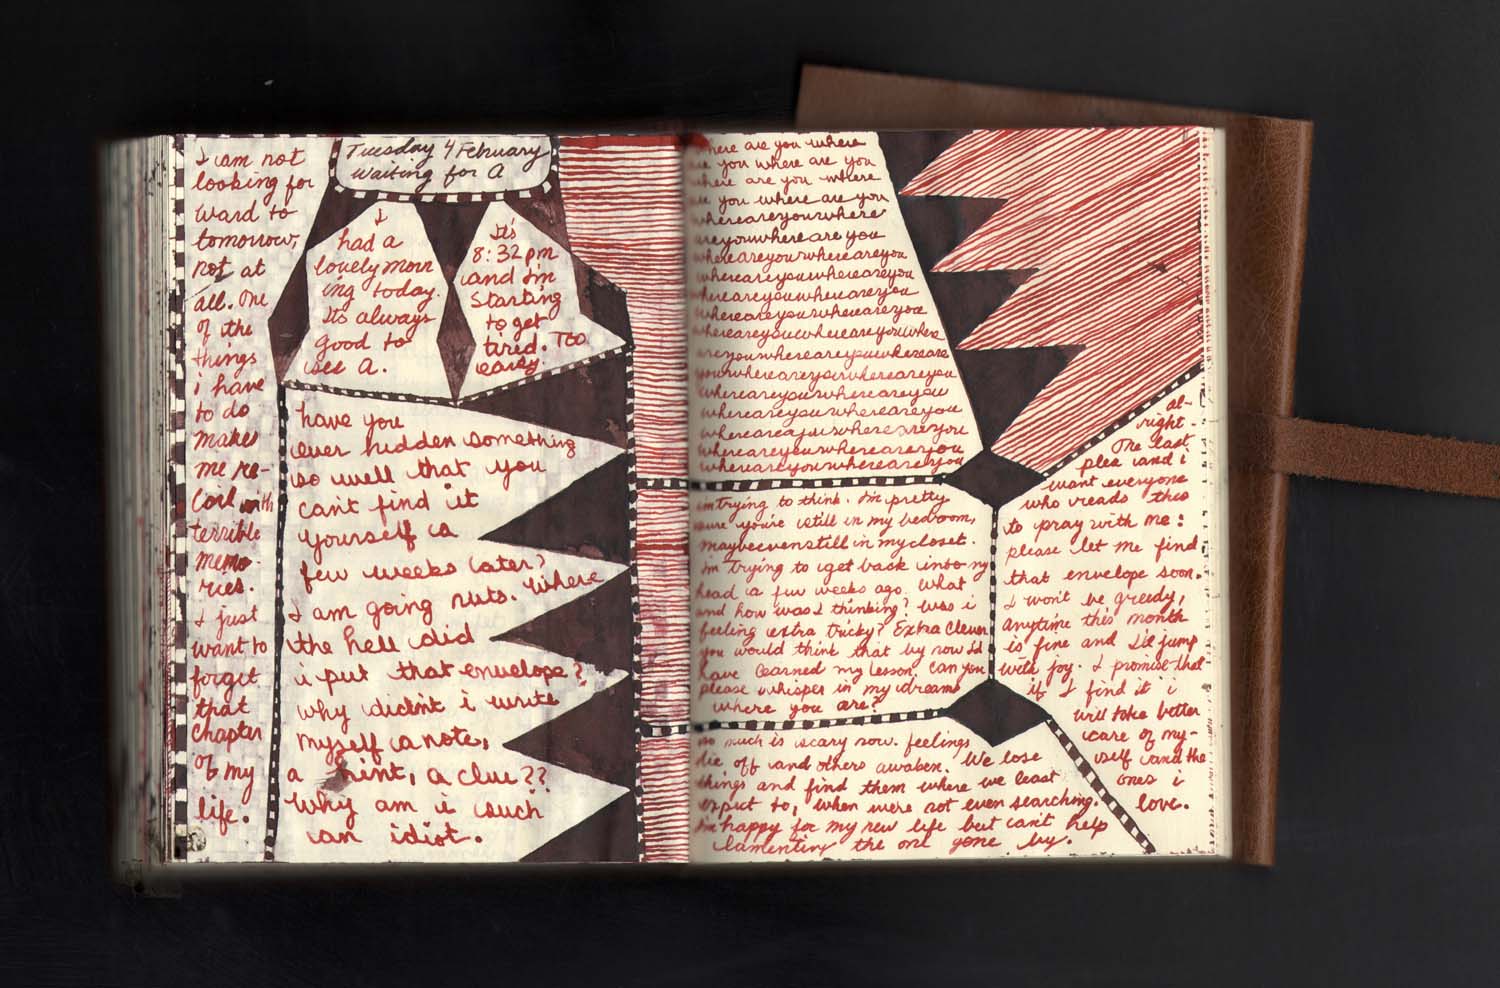 Tuesday 4 February
Waiting for A
I am not
looking for
ward to
tomorrow,
not at
all. One
of the
things
i have
to do
makes
me re-
coil with
terrible
memo-
ries.
I just
want to
forget
that
chapter
of my
life.
I
had a
lovely morn
ing today.
Its always
good to
see A.
It's
8:32 pm
and I'm
starting
to get
tired. Too
early.
have you
ever hidden something
so well that you
can't find it
yourself a
few weeks later?
I am going nuts. Where
the hell did
i put that envelope?
why didn't i write
myself a note,
a hint, a clue??
Why am i such
an idiot.
where are you where
are you where are you
where are you where
are you where are you
whereareyouwhere
areyouwhereare you
whereareyouwhereareyou
whereareyouwhereareyou
whereareyouwhereareyou
whereareyouwhereareyou
whereareyouwhereareyouwhere
areyouwhereareyouwhereare
youwhereareyouwhereareyou
whereareyouwhereareyou
whereareyouwhereareyou
whereareayouwhereareyou
whereareyouwhereareyou
whereareyouwhereareyou
im trying to think. I'm pretty
sure you're still in my bedroom,
maybeevenstill in mycloset.
I'm trying to get back into my
head a few weeks ago. What
and how was I thinking? Was i
feeling extra tricky? Extra clever
you would think that by now I'd
have learned my lesson. Can you
please whisper in my dreams
where you are?
so much is scary now. feelings
die off and others awaken. We lose
things and find them where we least
expect to, when were not even searching.
I'm happy for my new life but can't help
lamenting the one gone by.
al-
right.
One last
plea and i
want everyone
who reads this
to pray with me:
please let me find
that envelope soon.
I won't be greedy,
anytime this month
is fine and I'd jump
with joy. I promise that
if I find it i
will take better
care of my-
self and the
ones i
love.